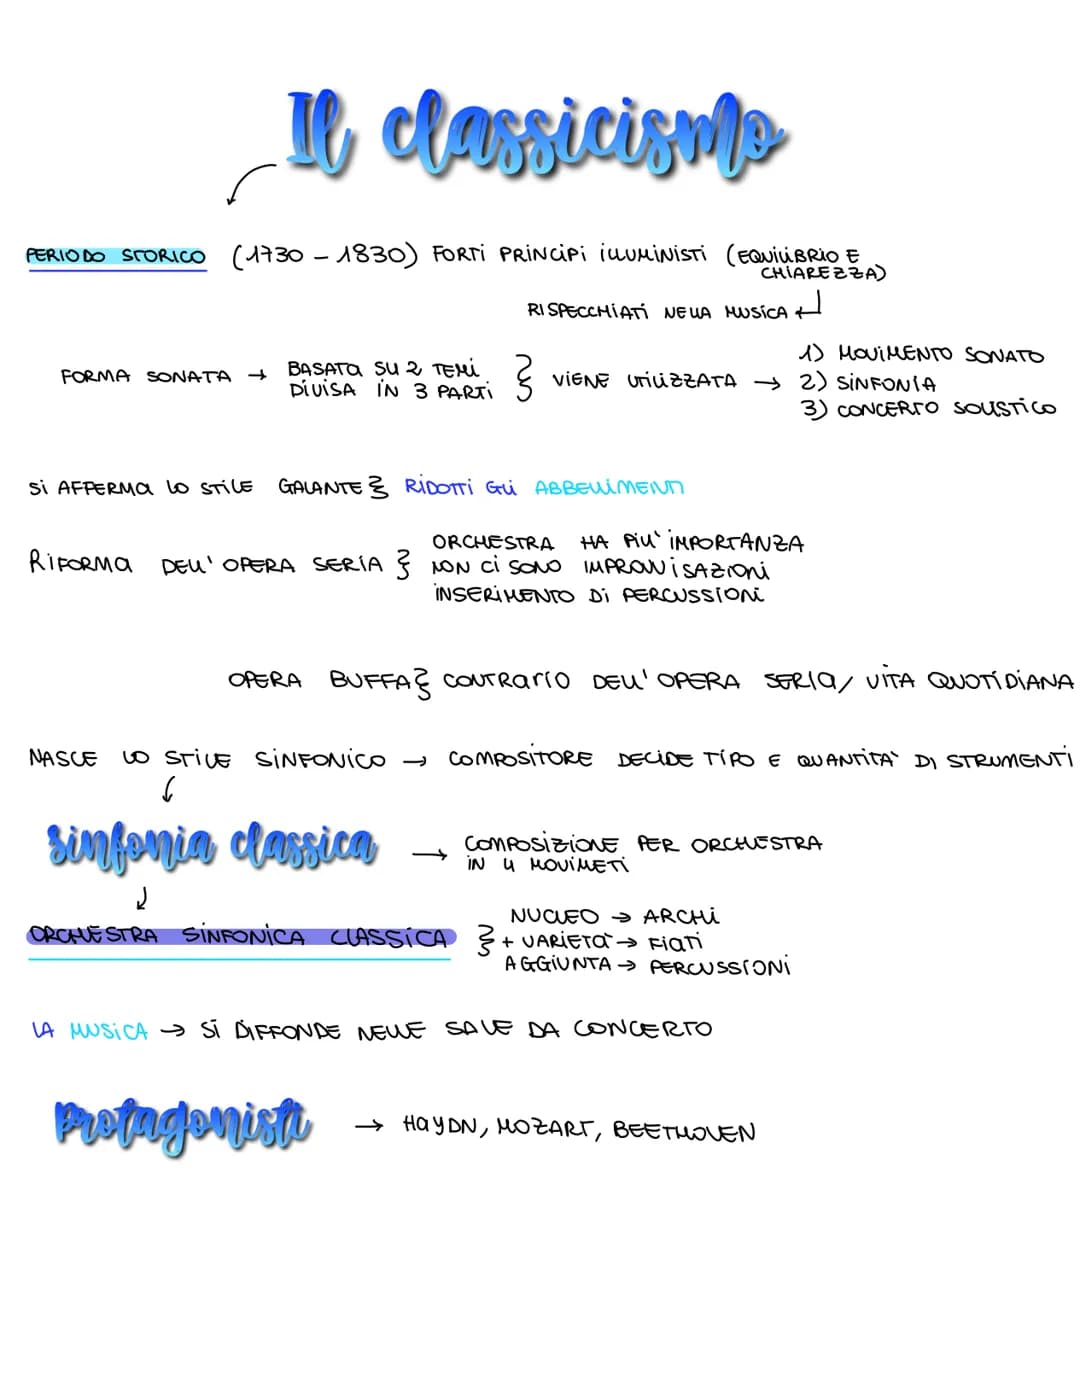 Il classicismo
PERIODO STORICO (1730 - 1830) FORTI PRINCIPI ILLUMINISTI (EQUILIBRIO E
CHIAREZZA)
RISPECCHIATI NELLA MUSICA
FORMA SONATA → BASATA SU 2 TEMI
DIVISA IN 3 PARTI
} VIENE UTILIZZATA →
1) MOVIMENTO SONATO
2) SINFONIA
3) CONCERTO SOLISTICO
SI AFFERMA LO STILE GALANTE } RIDOTTI GLI ABBELLIMENTI
RIFORMA DELL' OPERA SERIA }
ORCHESTRA HA PIU' IMPORTANZA
NON CI SONO IMPROVVISAZIONI
INSERIMENTO DI PERCUSSIONI
OPERA BUFFA } CONTRARIO DELL' OPERA SERIA/ VITA QUOTIDIANA
NASCE LO STILE SINFONICO → COMPOSITORE DECIDE TIPO E QUANTITA' DI STRUMENTI
sinfonia classica → COMPOSIZIONE PER ORCHESTRA
IN 4 MOVIMETI
ORCHESTRA SINFONICA CLASSICA }
NUCLEO → ARCHI
+ VARIETA' → FIATI
AGGIUNTA → PERCUSSIONI
LA MUSICA → SI DIFFONDE NELLE SALE DA CONCERTO
Protagonisti → HAYDN, MOZART, BEETHOVEN